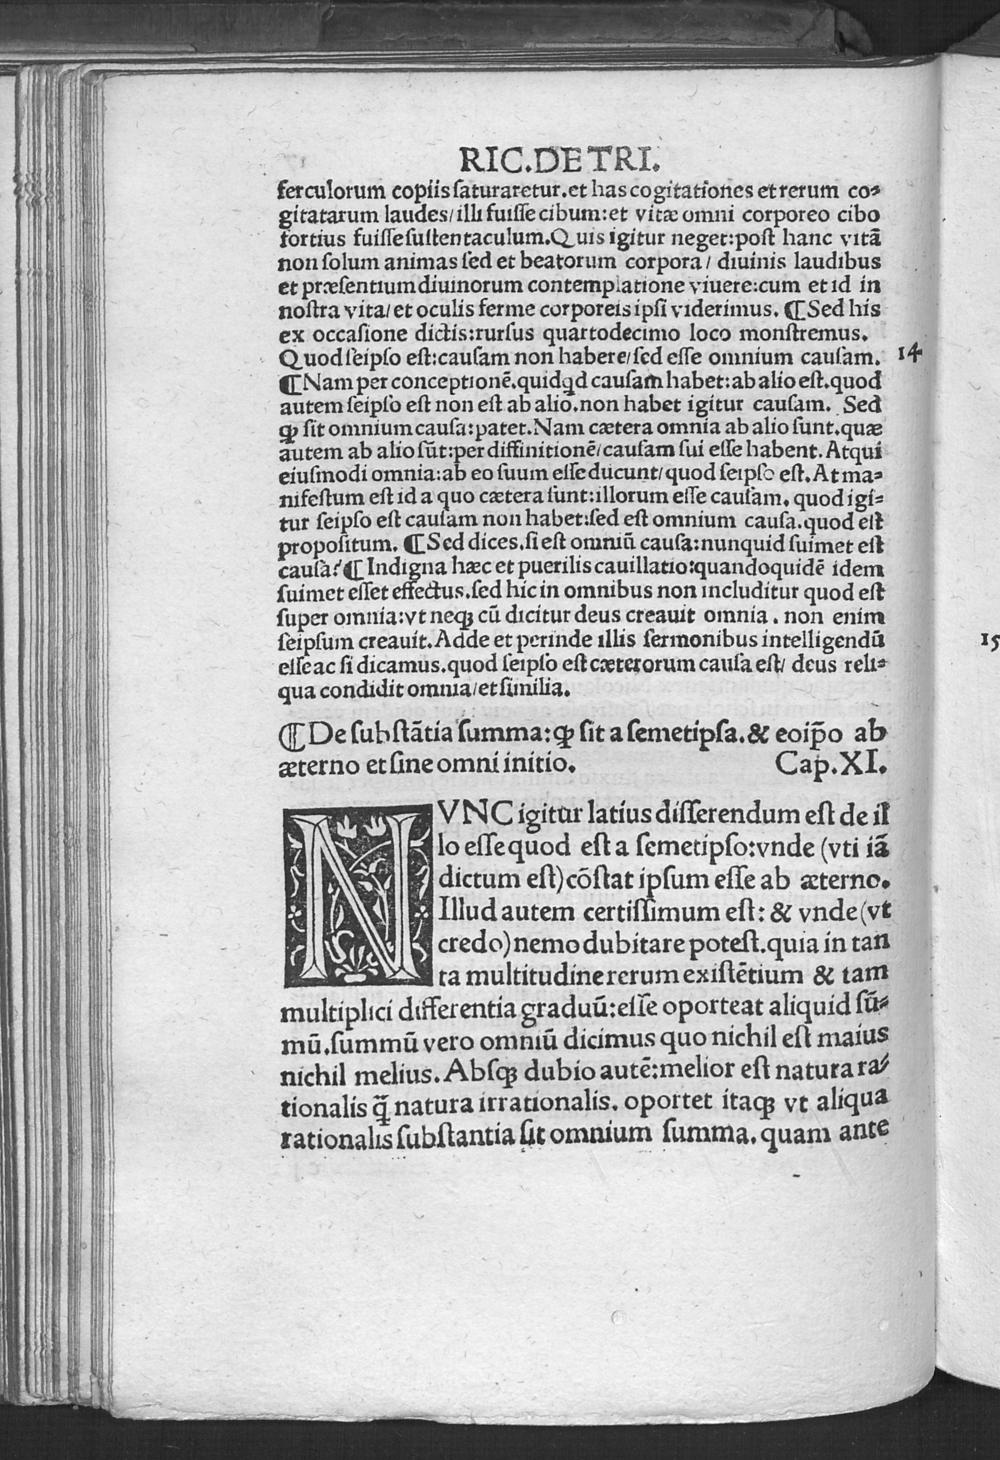 RIC.DE TRI.
ferculorum copiis ſaturaretur.et has cogitationes et rerum co⸗
gitatarum laudes/illi fuiſſe cibum:et vitæ omni corporeo cibo
fortius fuiſſe ſuſtentaculum.Quis igitur neget:poſt hanc vitā
non ſolum animas ſed et beatorum corpora/ diuinis laudibus
et præſentium diuinorum contemplatione viuere:cum et id in
noſtra vita/et oculis ferme corporeis ipſi viderimus. ¶Sed his
ex occaſione dictis:rurſus quartodecimo loco monſtremus.
Quod ſeipſo eſt:cauſam non habere/ſed eſſe omnium cauſam. 14
¶Nam per conceptionē.quidqd cauſam habet:ab alio eſt.quod
autem ſeipſo eſt non eſt ab alio.non habet igitur cauſam. Sed
ꝙ ſit omnium cauſa:patet.Nam cætera omnia ab alio ſunt.quæ
autem ab alio ſūt:per diffinitionē/cauſam ſui eſſe habent.Atqui
eiuſmodi omnia:ab eo ſuum eſſe ducunt/quod ſeipſo eſt.At ma⸗
nifeſtum eſt id a quo cætera ſunt:illorum eſſe cauſam.quod igi⸗
tur ſeipſo eſt cauſam non habet:ſed eſt omnium cauſa.quod eſt
propoſitum. ¶Sed dices.ſi eſt omniū cauſa:nunquid ſuimet eſt
cauſa?¶Indigna hæc et puerilis cauillatio:quandoquidē idem
ſuimet eſſet effectus.ſed hic in omnibus non includitur quod eſt
ſuper omnia:vt neqꝫ cū dicitur deus creauit omnia . non enim
ſeipſum creauit.Adde et perinde illis ſermonibus intelligendū
eſſe ac ſi dicamus.quod ſeipſo eſt cæterorum cauſa eſt/ deus reli⸗
qua condidit omnia/et ſimilia.
15
¶De ſubſtātia ſumma:ꝙ ſit a ſemetipſa.& eoip̄o ab
æterno et ſine omni initio. Cap.XI.
NVNC igitur latius diſſerendum eſt de il
lo eſſe quod eſt a ſemetipſo:vnde (vti iā
dictum eſt)cōſtat ipſum eſſe ab æterno.
Illud autem certiſſimum eſt: & vnde(vt
credo)nemo dubitare poteſt.quia in tan
ta multitudine rerum exiſtētium & tam
multiplici differentia graduū:eſſe oporteat aliquid ſū⸗
mū.ſummū vero omniū dicimus quo nichil eſt maius
nichil melius.Abſqꝫ dubio autē:melior eſt natura ra⸗
tionalis q̄ natura irrationalis. oportet itaqꝫ vt aliqua
rationalis ſubſtantia ſit omnium ſumma.quam ante